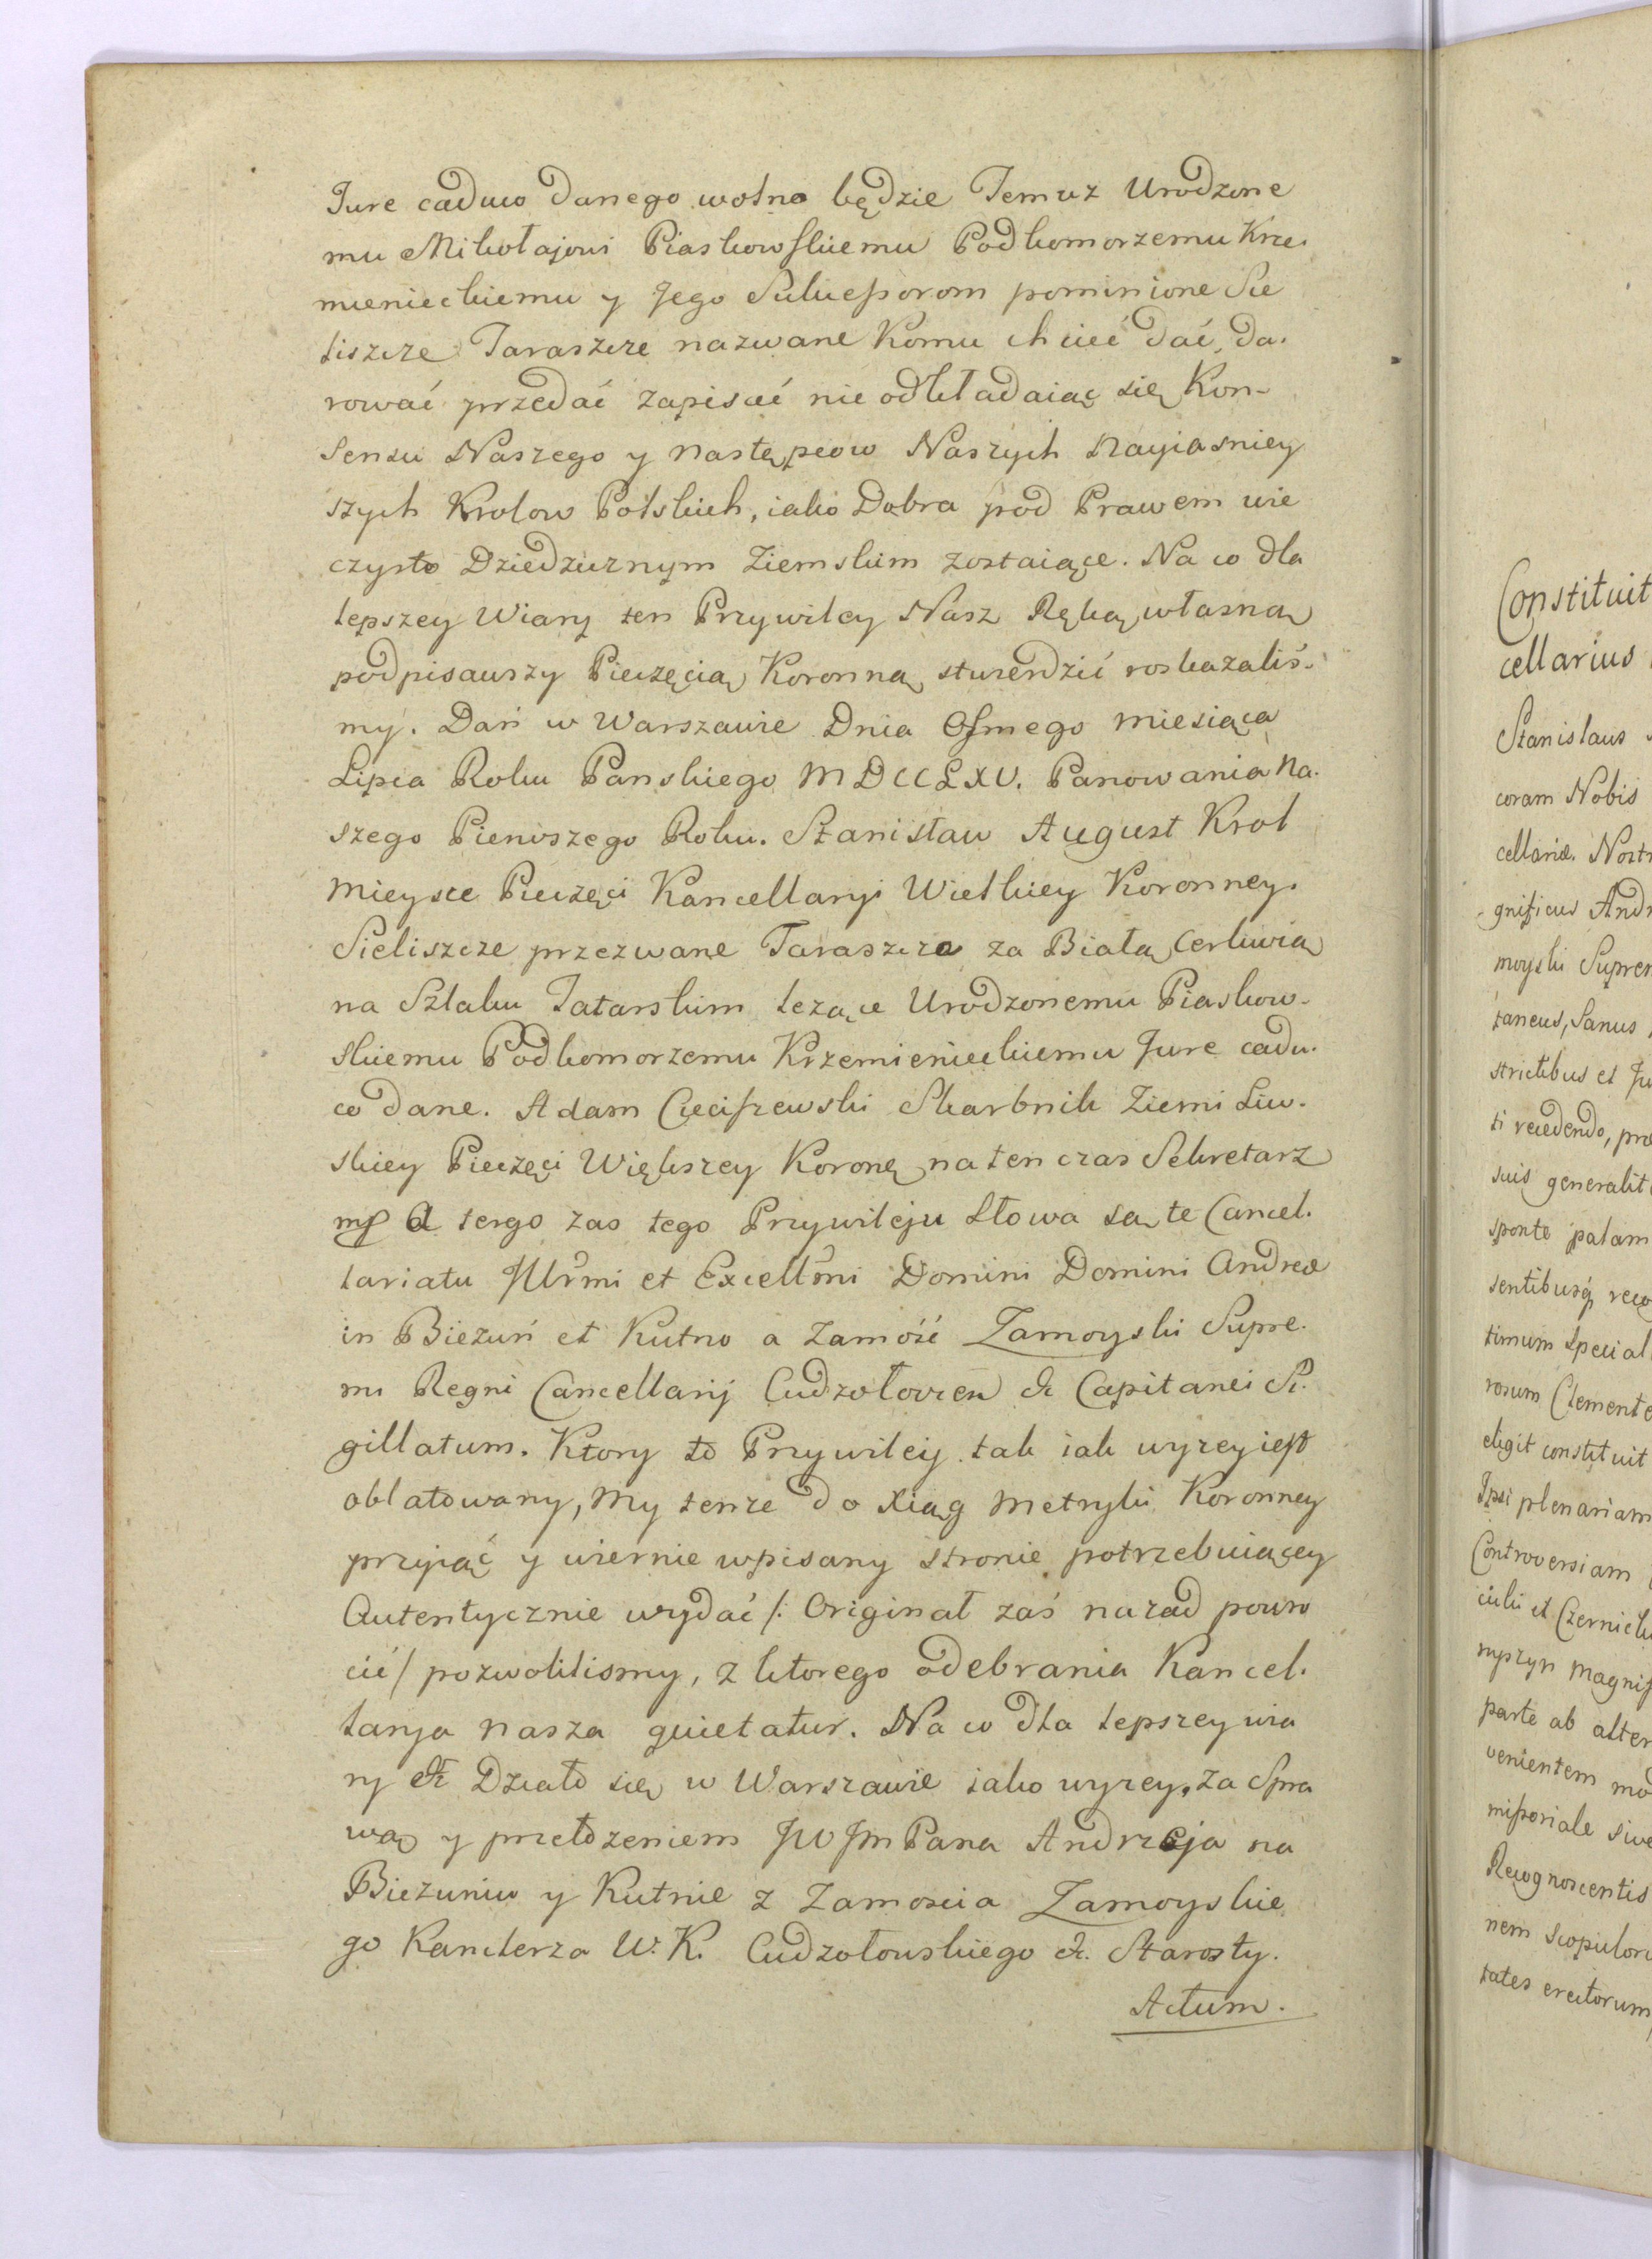 Jure caduco danego wolno będzie Temuz Urodzone
mu Mikołajowi Piaskowskiemu Podkomorzemu Krze.
mienieckiemu y Jego Sukcessorom pominione Sie
liszcze Taraszcze nazwane Komu chcieć dać, da.
rować przedać zapisać nie odkładaiąc się Kon-
sensu Naszego y Następcow Naszych Nayiasniey
szych Krolow Polskich, iako Dobra pod Prawem wie
czysto Dziedzicznym Ziemskim zostaiące. Na co dla
lepszey Wiary ten Przywiley Nasz Ręką własną
podpisawszy Pieczęcią Koronną stwierdzić roskazaliś-
my. Dań w Warszawie Dnia Osmego miesiąca
Lipca Roku Panskiego MDCCLXV. Panowania Na.
szego Pierwszego Roku. Stanisław August Krol
Mieysce Pieczęci Kancellaryi Wielkiey Koronney.
Sieliszcze przezwane Taraszcza za Białą Cerkwią
na Szlaku Tatarskim leżące Urodzonemu Piaskow-
skiemu Podkomorzemu Krzemienieckiemu Jure cadu.
co dane. Adam Cieciszewski Skarbnik Ziemi Liw-
skiey Pieczęci Większey Koronę na ten czas Sekretarz
mp A tergo zas tego Przywileju słowa są te Cancel.
lariatu Jllrmi et Excellmi Domini Domini Andreæ
in Bieżuń et Kutno a Zamość Zamoyski Supre.
mi Regni Cancellarij Cudzołovien & Capitanei Si.
gillatum. Ktory to Przywiley tak iak wyzey iest
oblatowany, My tenze do Xiąg Metryki Koronney
przyiąć y wiernie wpisany stronie potrzebuiącey
Autentycznie wydać /: Originał zaś nazad powro
cić / pozwolilismy, z ktorego odebrania Kancel.
larya nasza quietatur. Na co dla lepszey wia
ry & Działo się w Warszawie iako wyzey, za Spra
wą y przełożeniem JW JmPana Andrzeja na
Bieżuniu y Kutnie z Zamoscia Zamoyskie
go Kanclerza W. K. Cudzołouskiego &. Starosty.
Actum.
Constituit
cellarius
Stanislaus
coram Nobis
cellariæ. Nostr
gnificus Andr
moyski Suprem
taneus, Sanus
strictibus et Ju
ti recedendo, pro
suis generalit
sponte palam
sentibusq reco
timum special
rosum Clemente
elegit constituit
Ipsi plenariam
Controversiam
ciuki et Czernich
nyszyn Magnif
parte ab alter
venientem mo
missoriale sive
Recognoscentis
nem scopuloru
tates erectorum